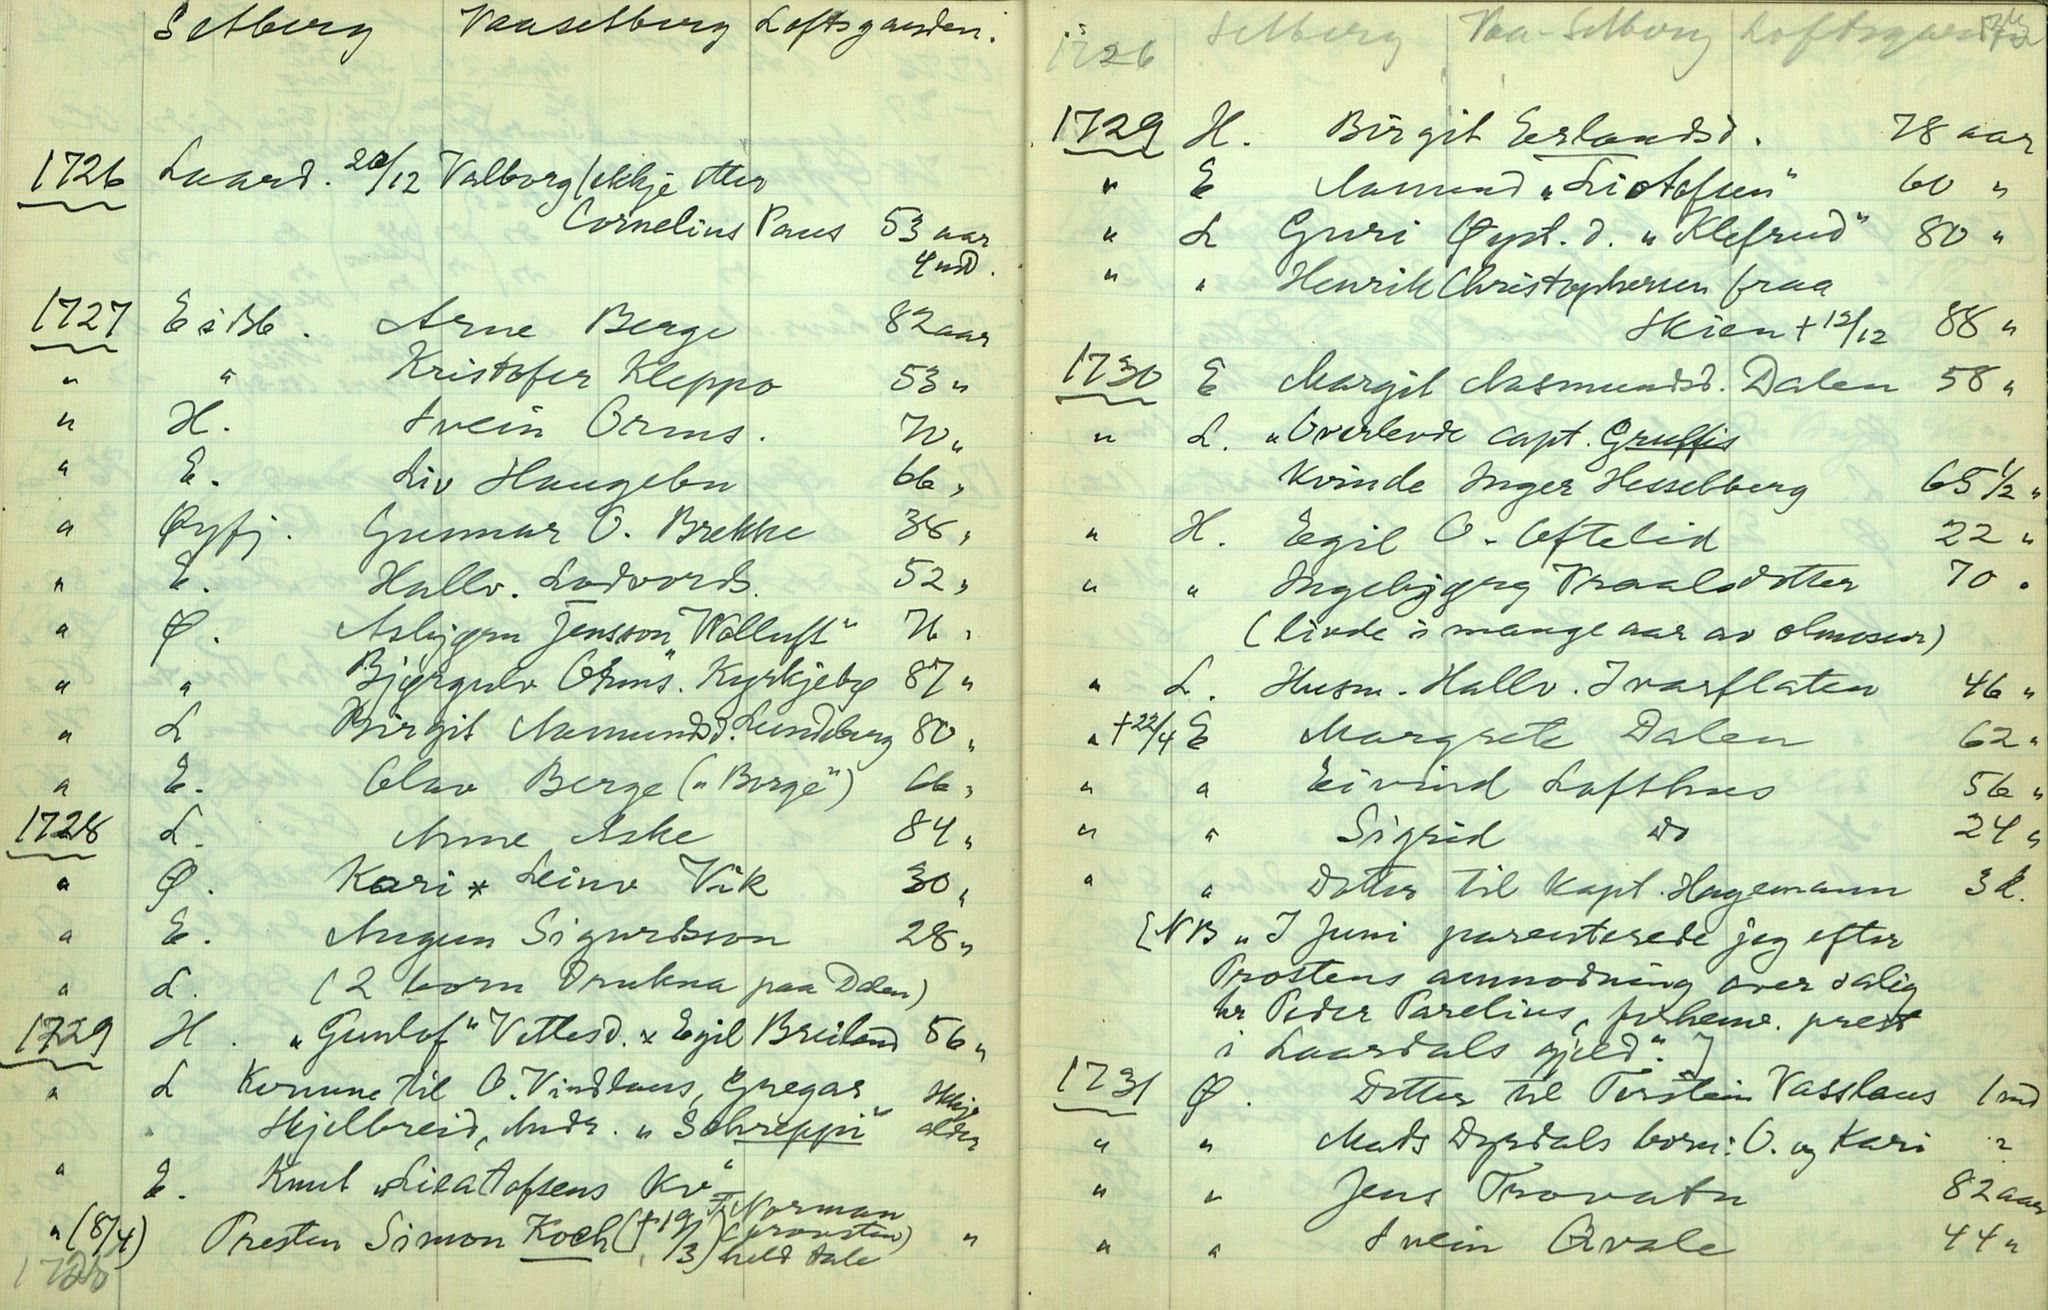 Setberg Vaasetberg Loftsgarden.
1726 Laard. 20/12 Valborg, ekkje etter
Cornelius Paus 53 aar
4 md.
1727 E i Bb. Arne Berge 82 aar
" " Kristofer Kleppo 53 "
" H. Svein Orms. 70 "
" E. Liv Haugebn 66 "
" Øyfj. Gunnar O. Brekke 38 "
" E. Hallv. Lodvords. 52 "
" Ø. Asbjørn Jensson "Волluft" 76 "
" " Bjørgulv Orms. Kyrkjebø 87 "
" L Birgit Aamundsd. Lundeberg 80 "
" E. Olav Berge ("Borge") 66 "
1728 L. Arne Aske 84 "
" Ø. Kari * Leinv Vik 30 "
" E. Augun Sigurdsson 28 "
" L. (2 born drukna paa Dalen)
1729 H. "Gunlof" Vetlesd. x Egil Breiland 56 "
" L Konune til O. Vindlaus, Gregar ikkje
Skjelbreid, Andr. "Schreppi" alder
" E. Knut "Lieatofsens Kv"
" (8/4) Presten Simon Koch († 19/3) F. Norman (provsten) held tale "
1728
1726 Setberg Vaa-Setberg Loftsgarden
1729 H. Birgit Erlandsd. 78 aar
" E Aamund "Liotofsen" 60 "
" L Guri Øyst. d. "Klefrud" 80 "
" " Henrik Christophersen fraa
Skien + 12/12 88 "
1730 E Margit Aasmundsd. Dalen 58 "
" L. "Overlevde capt. Gruffis
Kvinde Inger Hesselberg 65 1/2 "
" H. Egil O. Oftelid 22 "
" " Ingebjørg Vraalsdotter 70 "
(livde i mange aar av almosur)
" L. Husm. Hallv. Ivarflaten 46 "
" +22/4 E Margrete Dalen 62 "
" " Eivind Lofthus 56 "
" " Sigrid do 24 "
" " Dotter til Kapt. Hagemann 3 d.
[NB "I Juni parenterede jeg efter
Prostens anmodning over salig
hr Peder Parelius, forhenv. prest
i Laardals gjeld".]
1731 Ø. Dotter til Torstein Vasslaus 1 md
" " Mads Dyrdals born: O. og Kari 2
" " Jens Trovatn 82 aar
" " Svein Qvale 44 "